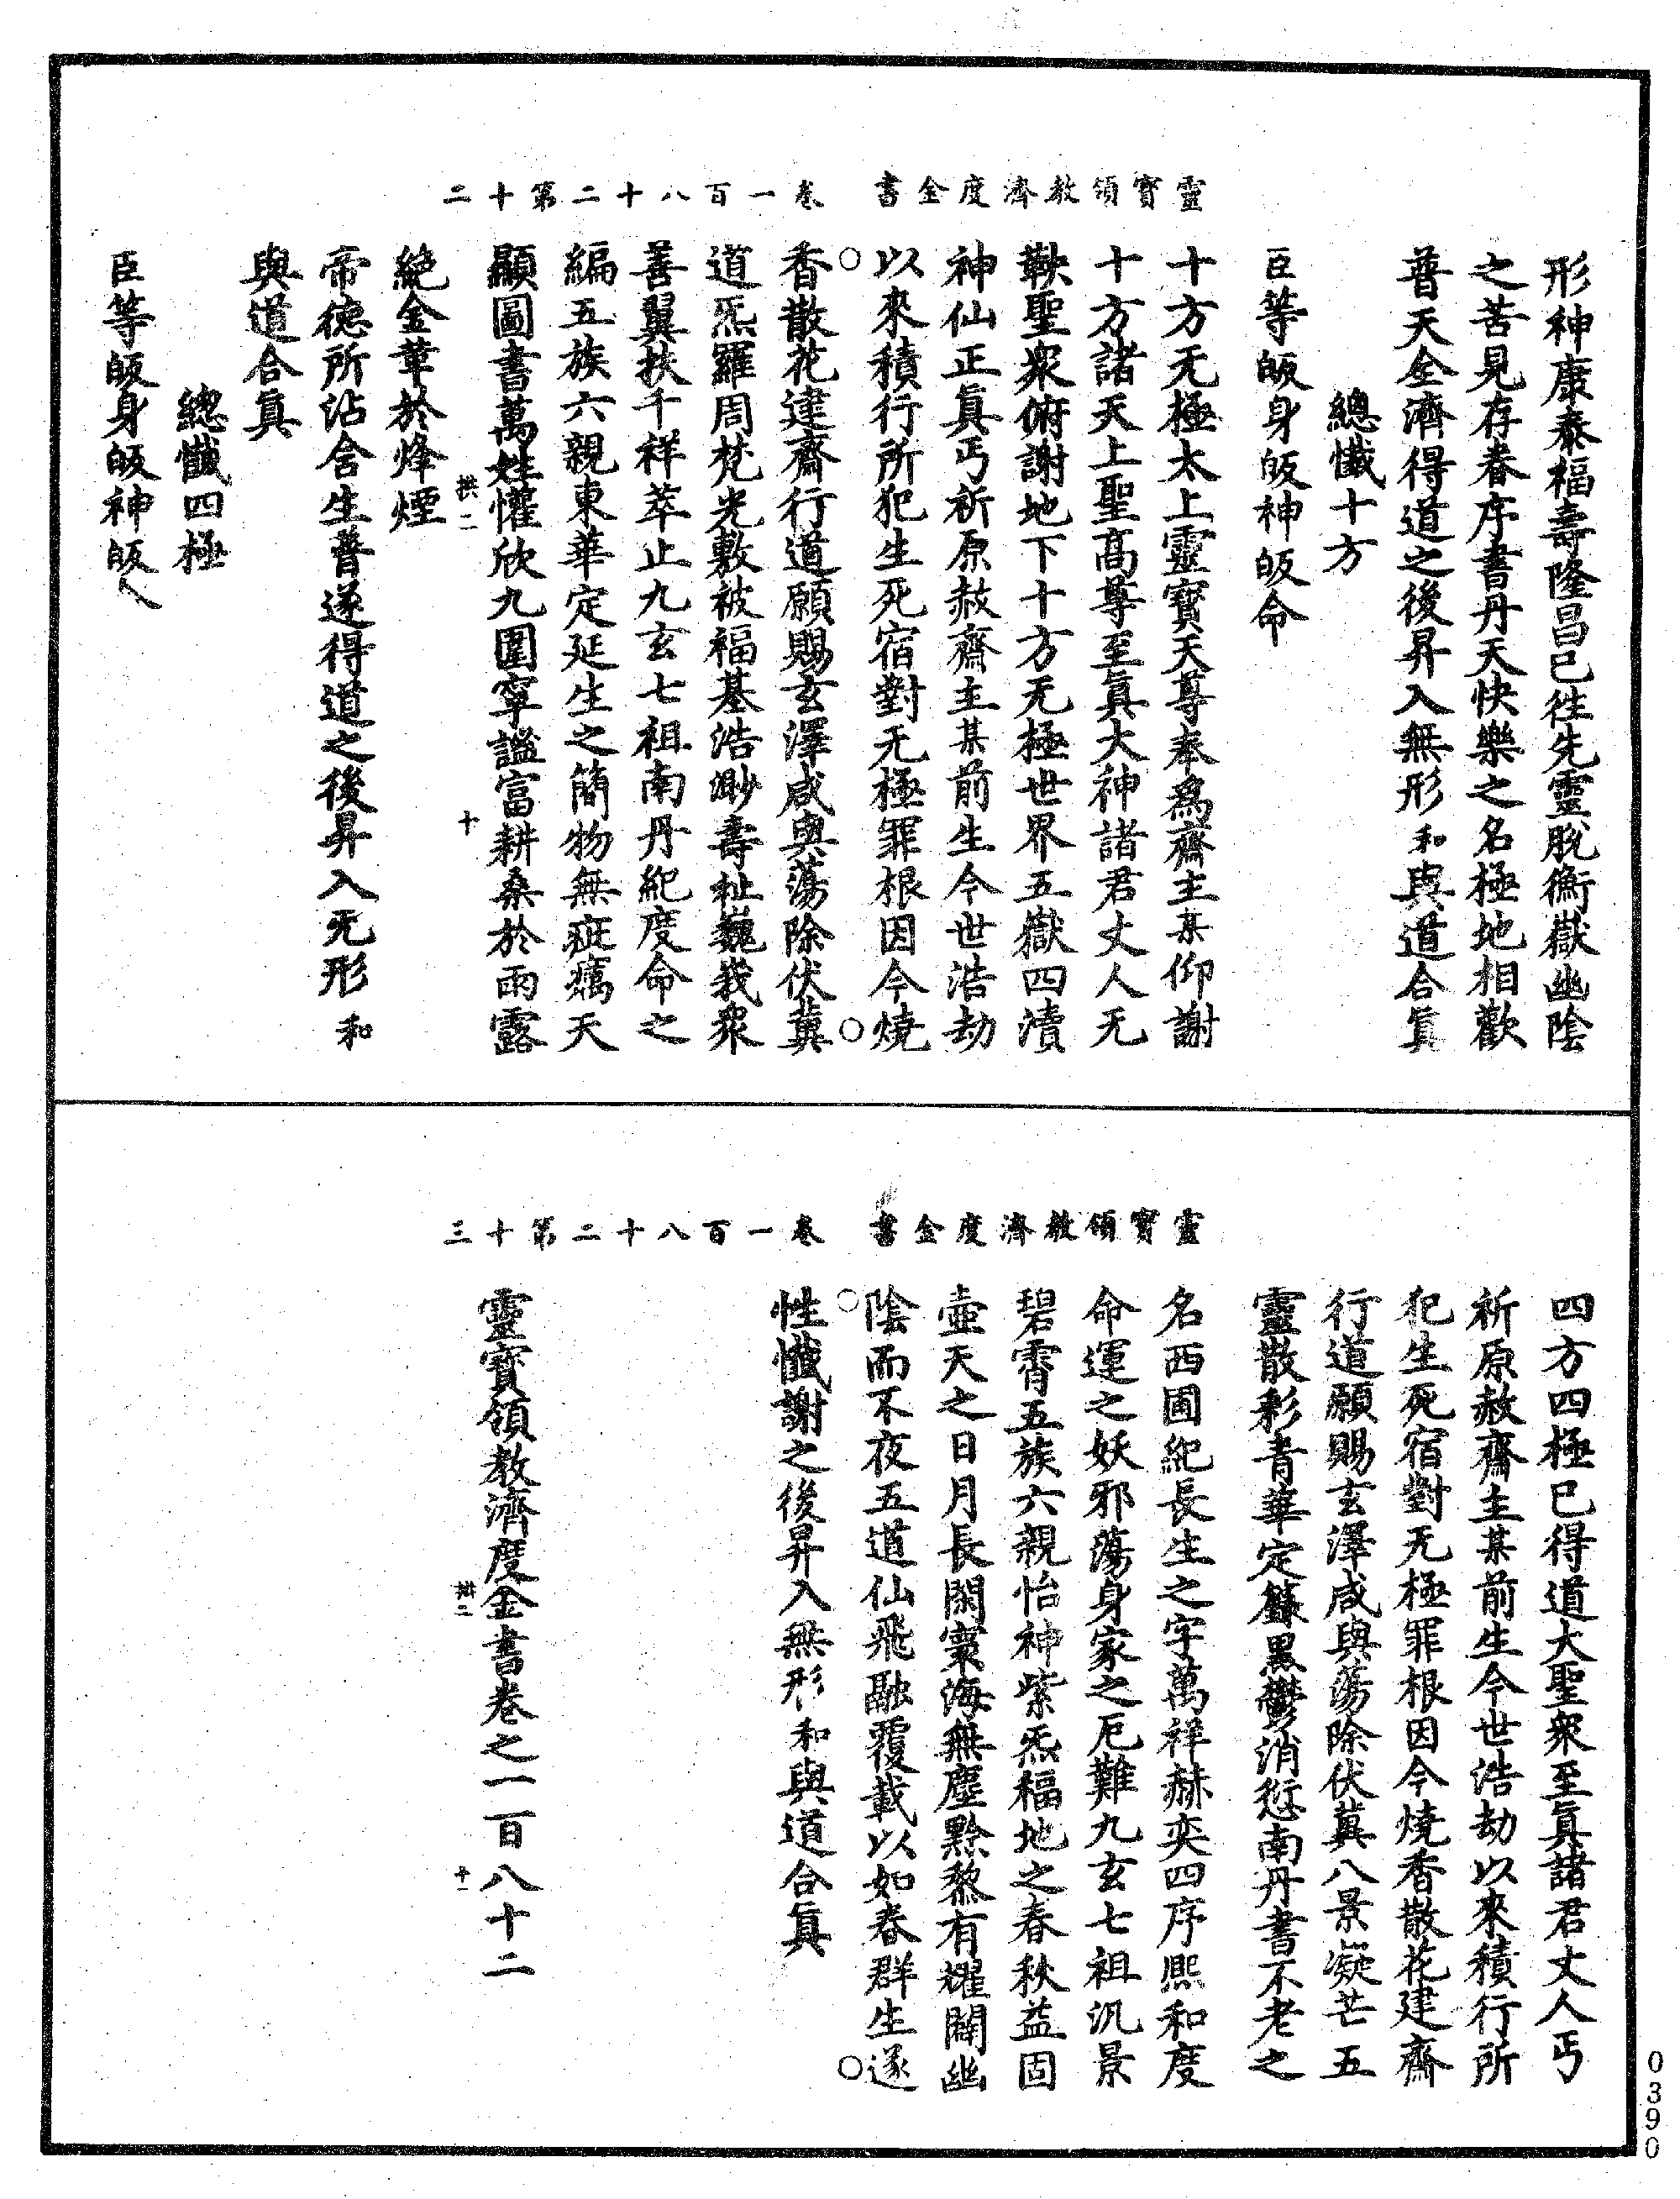 靈寶領教濟度金書　卷一百八十二第十二
形神康泰福壽隆昌已徃先靈脫衡嶽幽陰
之苦見存眷序書丹天快樂之名極地相歡
普天全濟得道之後昇入無形和與道合眞
總懺十方
臣等皈身皈神皈命
十方无極太上靈寶天尊奉爲齋主某仰謝
十方諸天上聖高尊至眞大神諸君丈人无
鞅聖衆俯謝地下十方无極世界五嶽四瀆
神仙正眞丐祈原赦齋主某前生今世浩劫
以來積行所犯生死宿對无極罪根因今燒
香散花建齋行道願賜玄澤咸與蕩除伏冀
道炁羅周梵光敷被福基浩渺壽祉巍峩衆
善翼扶千祥萃止九玄七祖南丹紀度命之
編五族六親東華定延生之簡物無疵癘天
顯圖書萬姓懽欣九圍寧謐富耕桑於雨露
拱二　十
絕金革於烽煙
帝德所沾含生普遂得道之後昇入无形和
與道合眞
總懺四極
臣等皈身皈神皈命
靈寶領教濟度金書　卷一百八十二第十三
四方四極已得道大聖衆至眞諸君丈人丐
祈原赦齋主某前生今世浩劫以來積行所
犯生死宿對无極罪根因今燒香散花建齋
行道願賜玄澤咸與蕩除伏冀八景凝芒五
靈散彩青華定籙黑鬱消愆南丹書不老之
名西圃紀長生之字萬祥赫奕四序熙和度
命運之妖邪蕩身家之厄難九玄七祖汎景
碧霄五族六親怡神紫炁福地之春秋益固
壺天之日月長閑寰海無塵黔黎有耀闢幽
陰而不夜五道仙飛融覆載以如春群生遂
性懺謝之後昇入無形和與道合眞
靈寶領教濟度金書卷之一百八十二
拱二　十一
0390